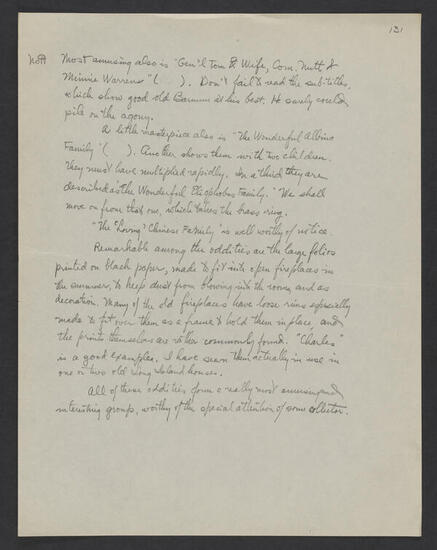 131
No ¶ Most amusing also is "Gen'l Tom & Wife, Com. Nutt &
Minnie Warrens" (    ). Don't fail to read the sub-titles,
which show good old Barnum at his best. He surely could
pile on the agony.
A little masterpiece also is "The Wonderful Albino
Family" (    ). Another shows them with two children.
They must have multiplied rapidly. In a third they are
described as the Wonderful Eliophobus Family." We shall
move on from that one, which takes the brass ring.
"The 'Living' Chinese Family" is well worthy of notice.
Remarkable among the oddities are the large folios
printed on black paper, made to fit into open fireplaces in
the summer, to keep dust from blowing into the room, and as
decoration. Many of the old fireplaces have loose rims especially
made to fit over them as a frame to hold them in place, and
the prints themselves are rather commonly found. "Charles"
is a good example. I have seen them actually in use in
one or two old Long Island houses.
All of these oddities form a really most amusing and
interesting group, worthy of the special attention of some collector.